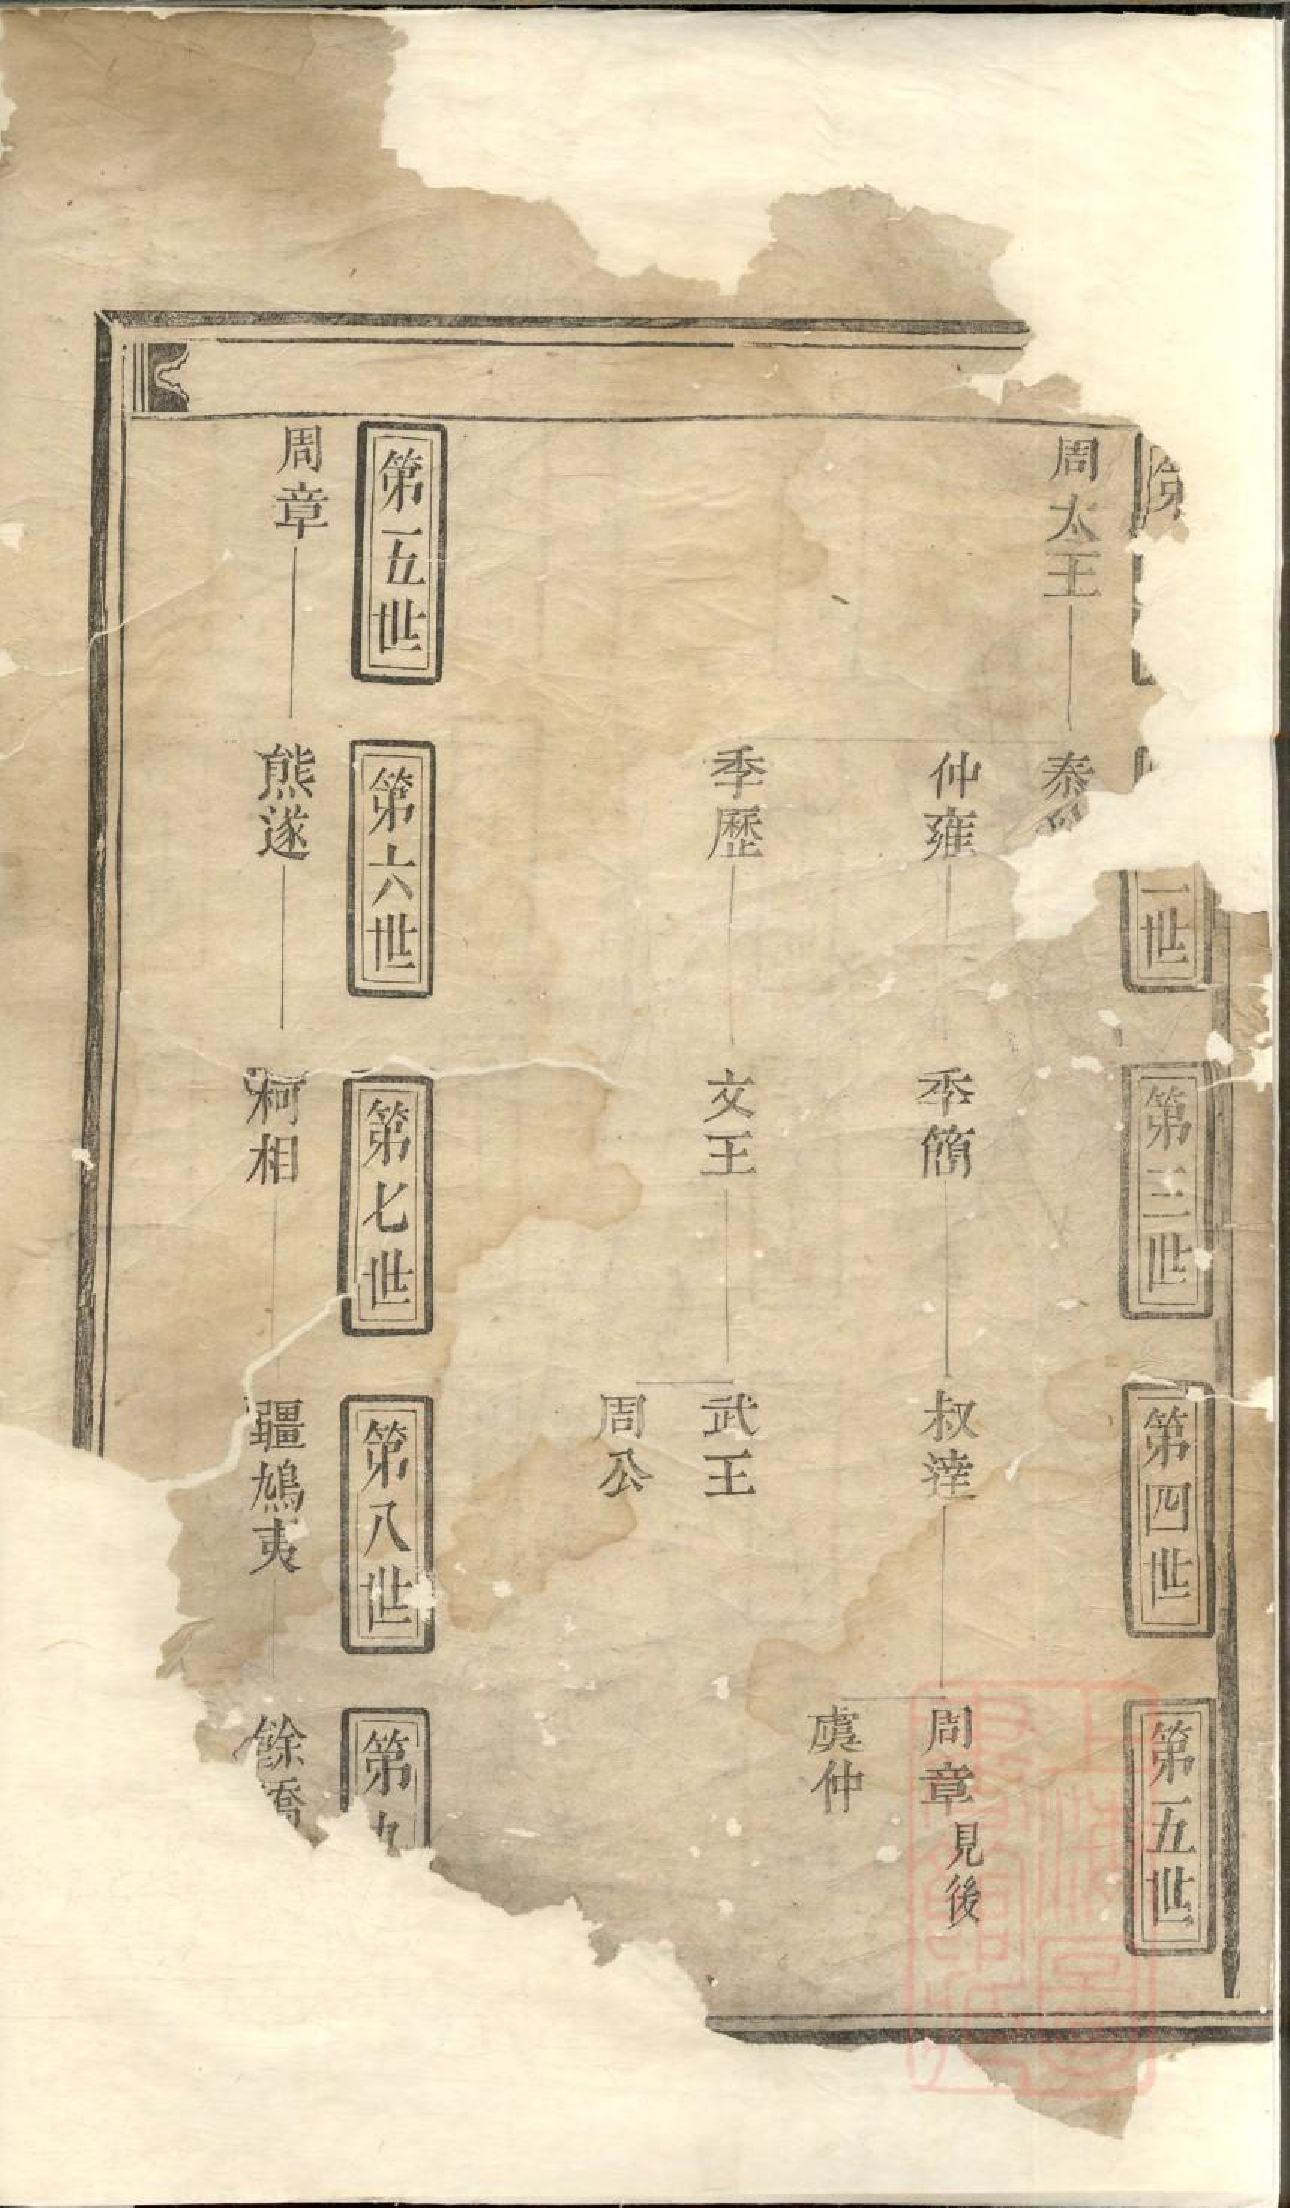 第
一世
第三世
第四世
第五世
周太王
泰
仲雍
季簡
叔達
周章見後
虞仲
季歷
文王
武王
周公
第五世
第六世
第七世
第八世
第九
周章
熊遂
柯相
彊鳩夷
餘橋